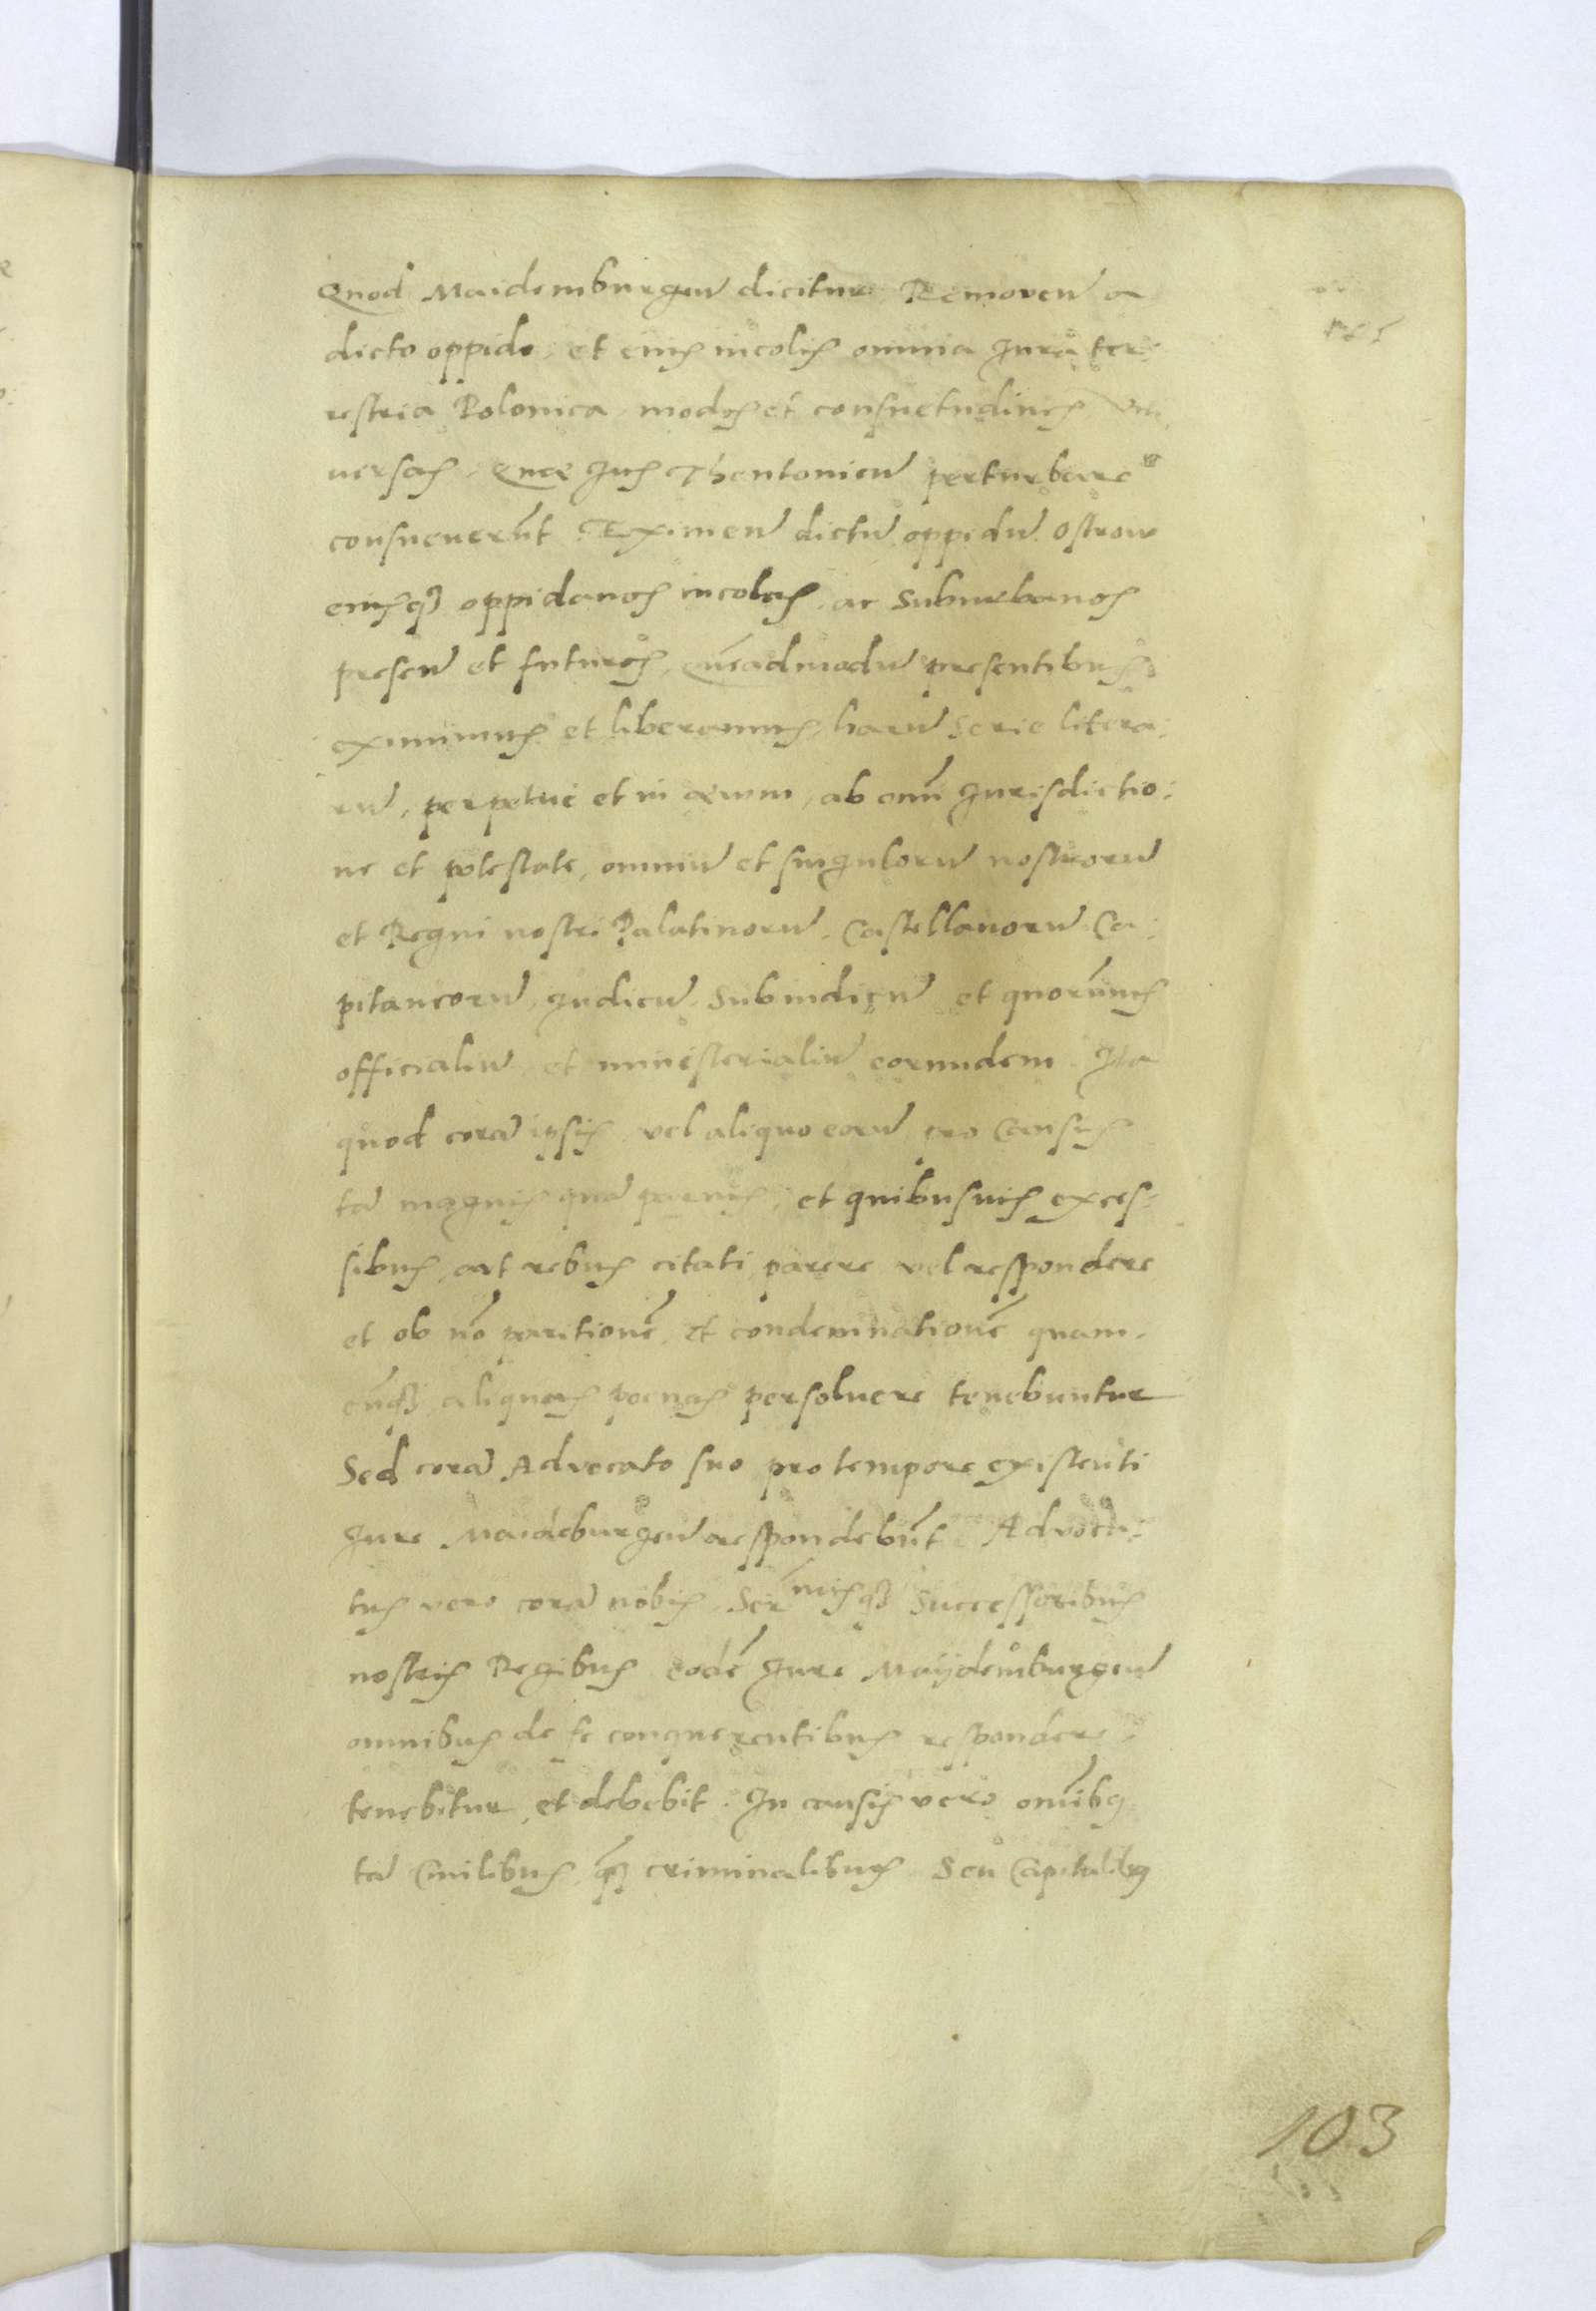 Quod Maidemburgeñ dicitur Removeñ a
dicto oppido, et eius incolis omnia Jura ter:
restria Polonica, modos et consuetudines
uersas, Que Jus Theutonicũ perturbare
consueuerũt. Eximeñ dictũ oppidũ Ostrow
eiusq₃ oppidanos incolas, ac Suburbanos
preseñ et futuros, Quẽadmodũ presentibus
eximimus et liberamus, harũ Serie litera:
rũ, perpetue et in æuum, ab omñi Jurisdictio:
ne et potestate, omniũ et singulorũ nostrorũ
et Regni nostri Palatinorũ, Castellanorũ Ca:
pitaneorũ, Judicũ, Subiudicũ et quorũuis
officialiũ, et ministerialiũ eorumdem. Ita
quod corã ipsis, vel aliquo eorũ, pro Causis
tã magnis quã paruis, et quibusuis exces:
sibus, aut rebus citati, parere vel respondere
et ob nõ paritionẽ, et condemnationẽ quam:
cũq₃, aliquas poenas persoluere tenebuntur
Sed corã Advocato suo pro tempore existenti
Jure Maideburgeñ respondebũt Advoca:
tus vero corã nobis, Serᵐⁱˢq₃ Successoribus
nostris Regibus eodẽ Jure Maydemburgeñ
omnibus de se conquerentibus respondere
tenebitur, et debebit. In causis vero omĩbꝰ
tã Ciuilibus, q̃₃ criminalibus Seu Capitalibꝰ
103